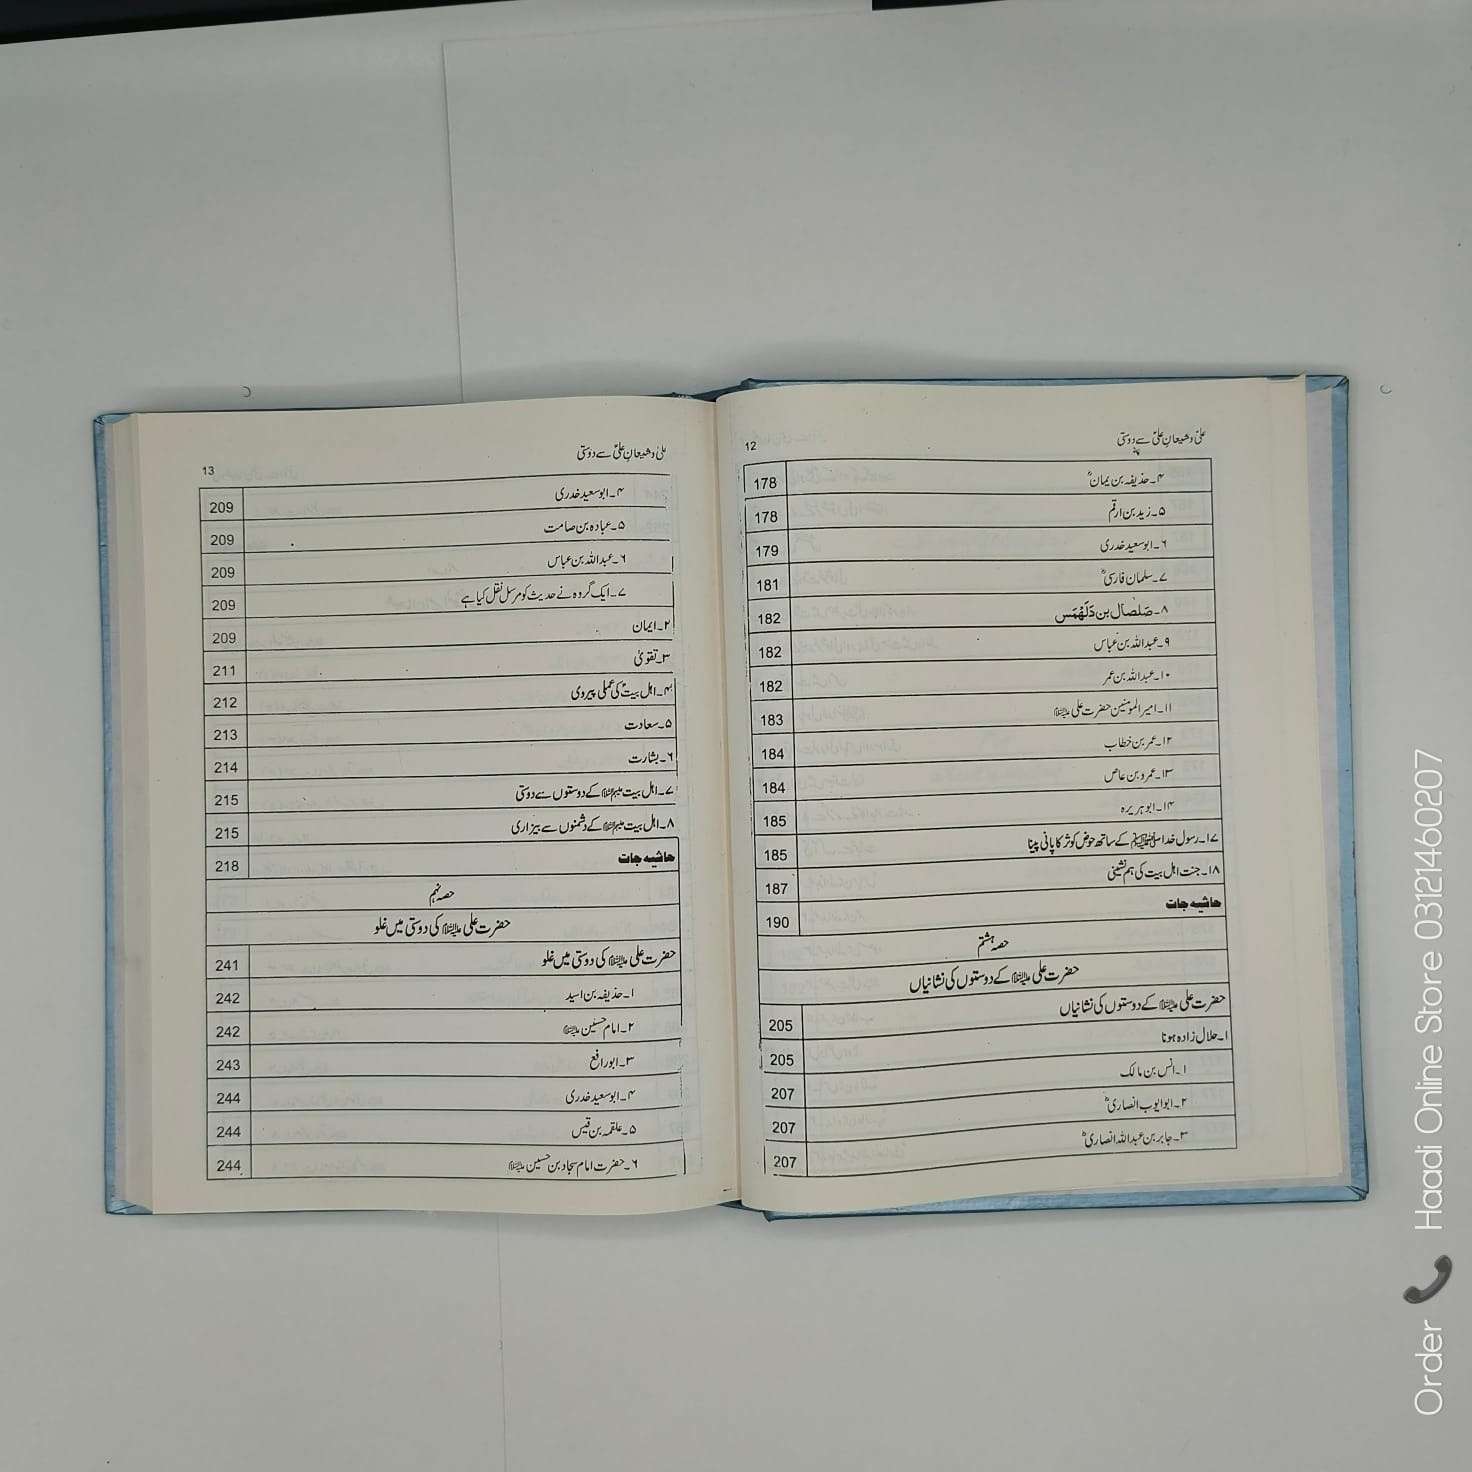 علیؑ و شیعانِ علیؑ سے دوستی
12
۴۔ حذیفہ بن یمانؓ 178
۵۔ زید بن ارقم 178
۶۔ ابوسعید خدری 179
۷۔ سلمان فارسیؓ 181
۸۔ صَلصَال بن دَلَهْمَس 182
۹۔ عبداللہ بن عباس 182
۱۰۔ عبداللہ بن عمر 182
۱۱۔ امیر المومنین حضرت علی علیہ السلام 183
۱۲۔ عمر بن خطاب 184
۱۳۔ عمرو بن عاص 184
۱۴۔ ابو ہریرہ 185
۱۷۔ رسول خدا صلی اللہ علیہ وآلہ وسلم کے ساتھ حوض کوثر کا پانی پینا 185
۱۸۔ جنت اہل بیت کی ہم نشینی 187
حاشیہ جات 190
حصہ ہشتم
حضرت علی علیہ السلام کے دوستوں کی نشانیاں
حضرت علی علیہ السلام کے دوستوں کی نشانیاں 205
۱۔ حلال زادہ ہونا 205
۱۔ انس بن مالک 207
۲۔ ابوایوب انصاریؓ 207
۳۔ جابر بن عبداللہ انصاریؓ 207
علیؑ و شیعانِ علیؑ سے دوستی
13
۴۔ ابوسعید خدری 209
۵۔ عبادہ بن صامت 209
۶۔ عبداللہ بن عباس 209
۷۔ ایک گروہ نے حدیث کو مرسل نقل کیا ہے 209
۲۔ ایمان 209
۳۔ تقویٰ 211
۴۔ اہل بیتؑ کی عملی پیروی 212
۵۔ سعادت 213
۶۔ بشارت 214
۷۔ اہل بیت علیہم السلام کے دوستوں سے دوستی 215
۸۔ اہل بیت علیہم السلام کے دشمنوں سے بیزاری 215
حاشیہ جات 218
حصہ نہم
حضرت علی علیہ السلام کی دوستی میں غلو
حضرت علی علیہ السلام کی دوستی میں غلو 241
۱۔ حذیفہ بن اسید 242
۲۔ امام حسین علیہ السلام 242
۳۔ ابورافع 243
۴۔ ابوسعید خدری 244
۵۔ علقمہ بن قیس 244
۶۔ حضرت امام سجاد بن حسین علیہ السلام 244
Order 📞 Haadi Online Store 03121460207